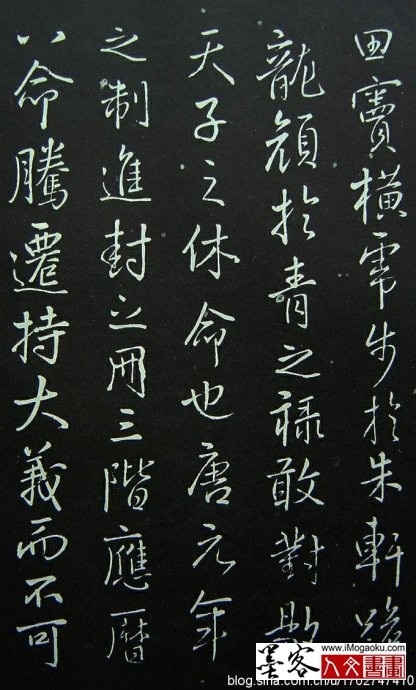 田竇橫步於朱軒
龍顏於青之祿敢對敭
天子之休命也唐元年
之制進封之冊三階應曆
八命騰遷持大義而不可
墨客
www.iMogaoku.com
人文書畫
blog.sina.com.cn/u/1702747410